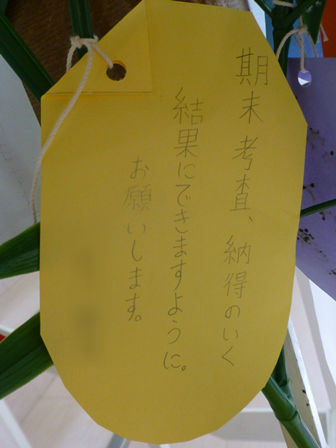 期末考査、納得のいく
結果にできますように。
お願いします。